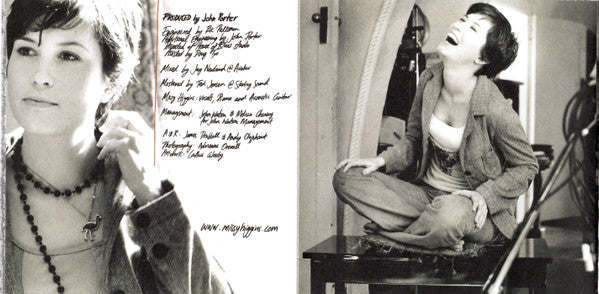 PRODUCED by John Porter
Engineered by
Additional Engineering by John Porter
Recorded at House of Blues Studio
Assisted by Doug
Mixed by Jay Newland @ Avatar
Mastered by Ted Jensen @ Sterling Sound
Missy Higgins: vocals, Piano and Acoustic Guitar
Management: John Watson & Melissa Chenery
for John Watson Management
A & R: James & Andy Oliphant
Photography: Adrienne Overall
Artwork: Cathie Glassby
www.missyhiggins.com